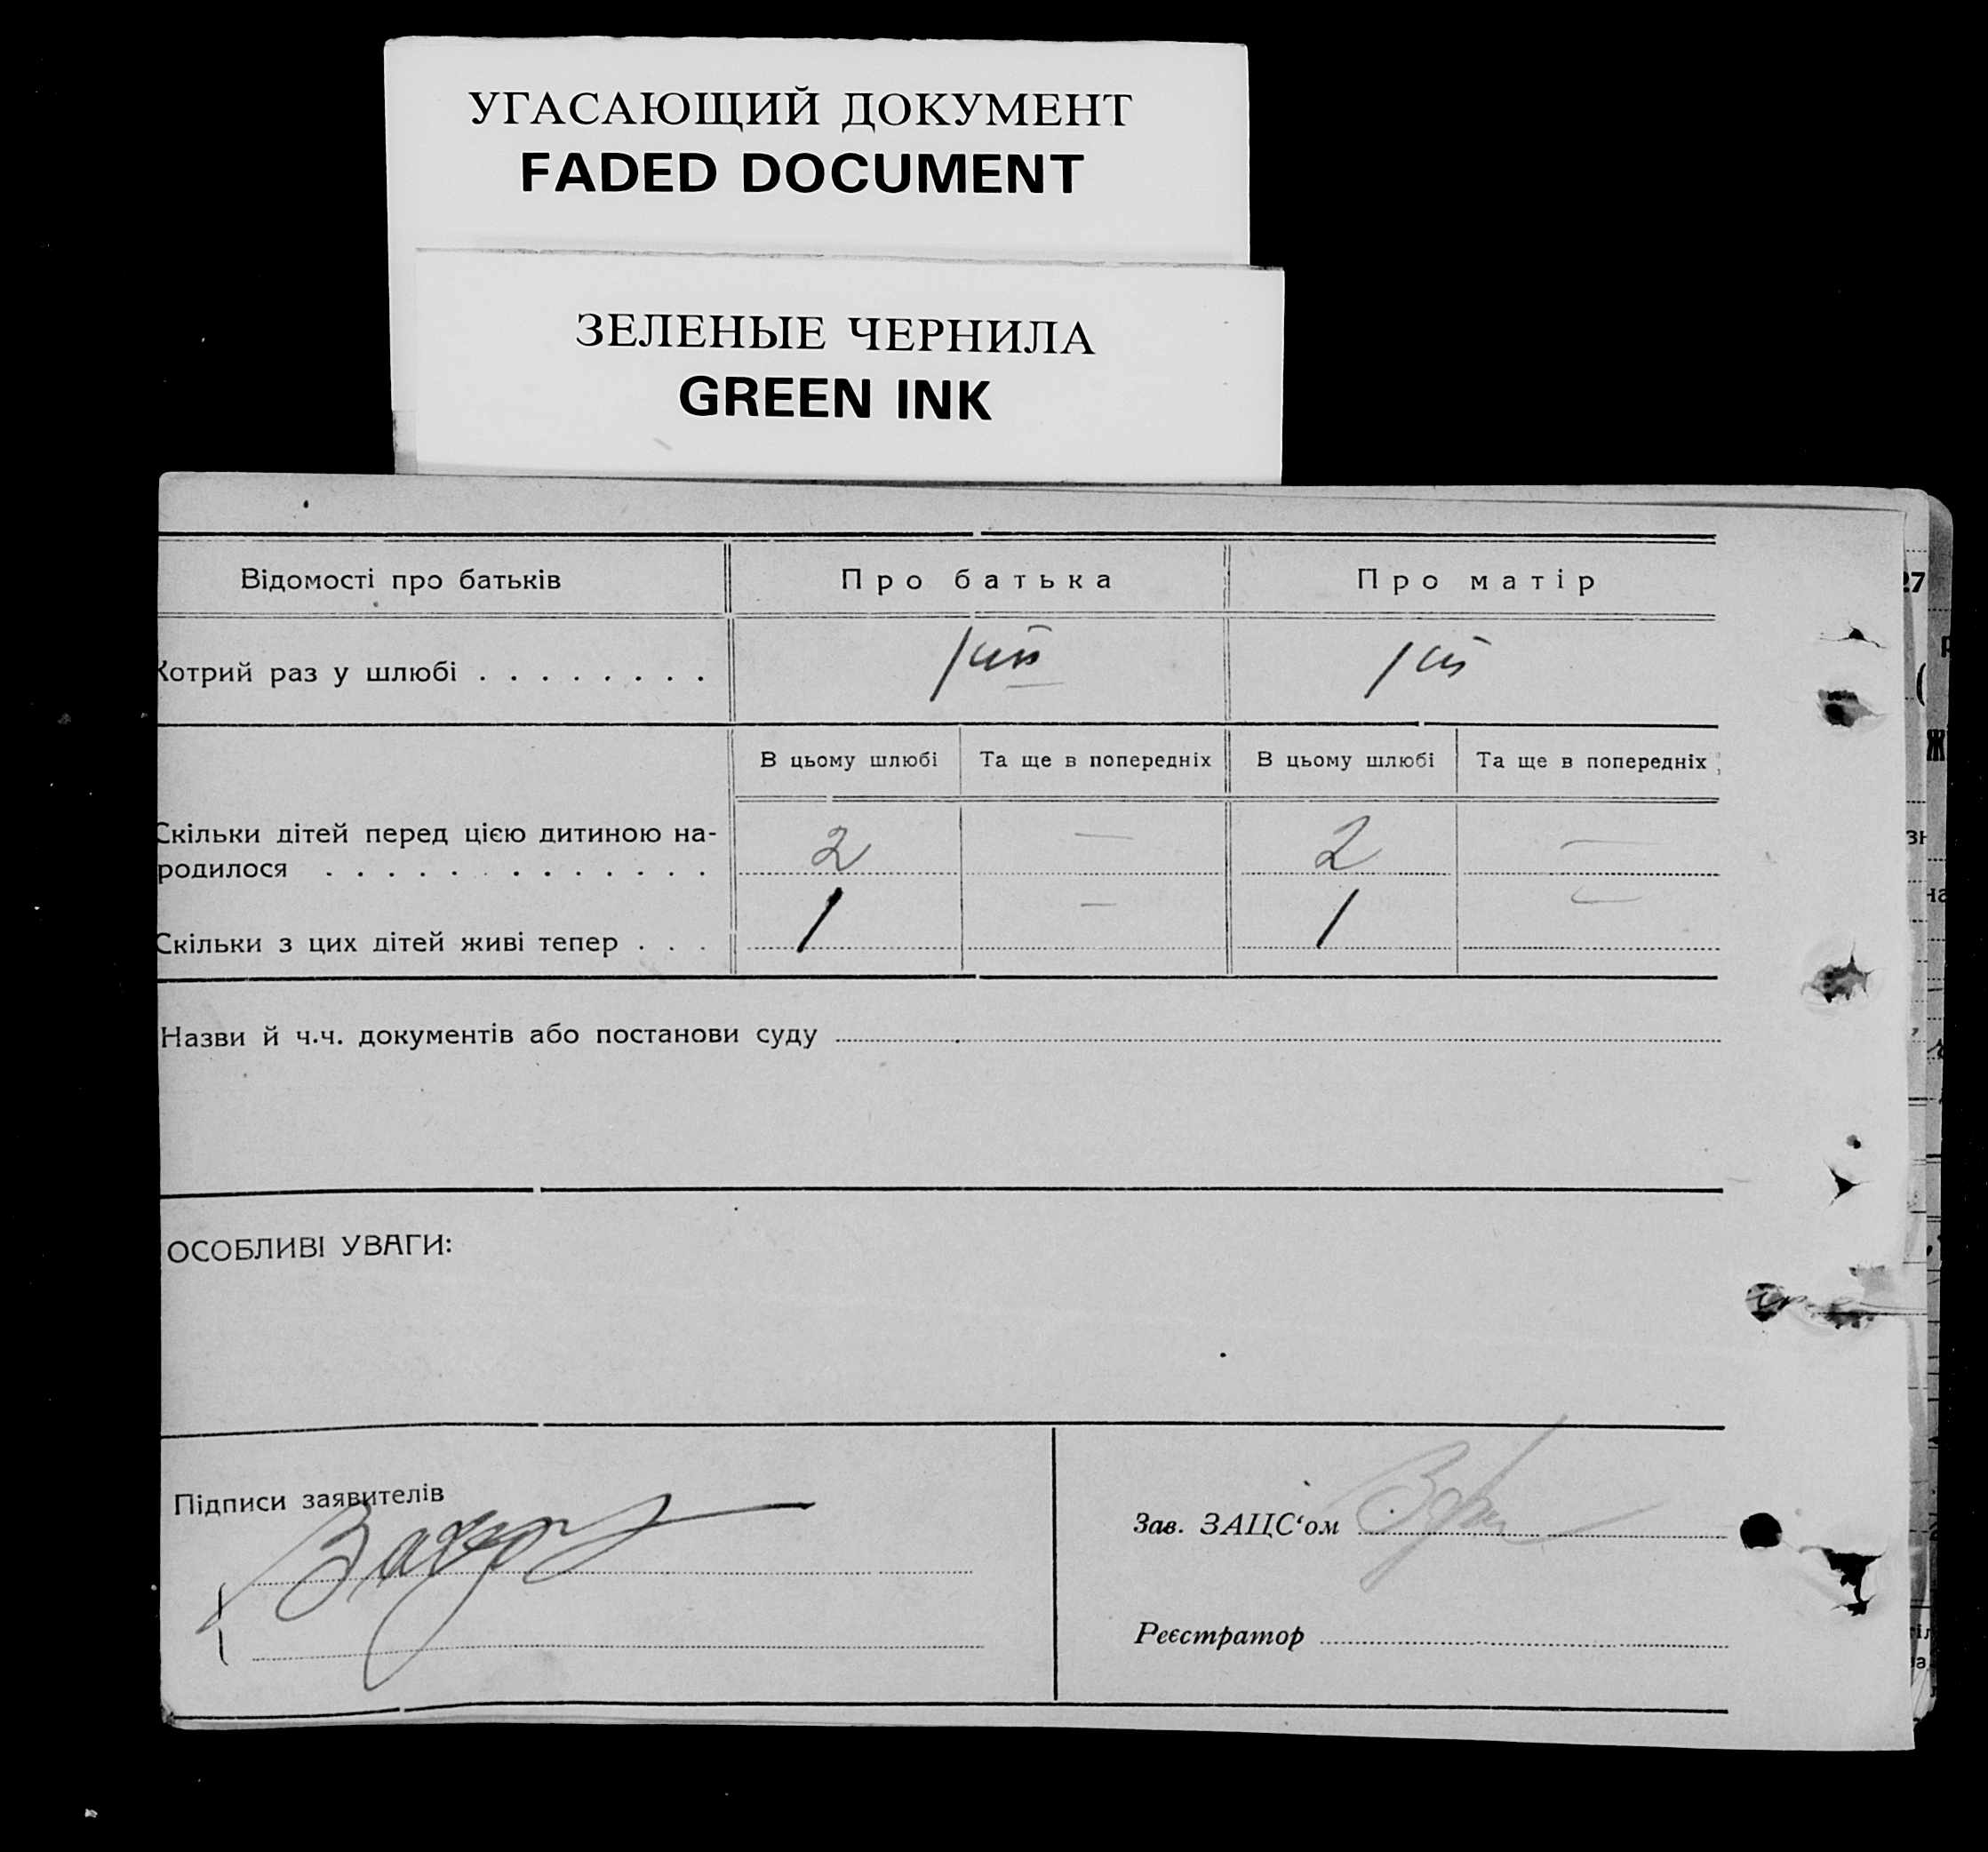 УГАСАЮЩИЙ ДОКУМЕНТ
FADED DOCUMENT
ЗЕЛЕНЫЕ ЧЕРНИЛА
GREEN INK
Відомості про батьків Про батька Про матір
Котрий раз у шлюбі . . . . . . . .
В цьому шлюбі Та ще в попередніх В цьому шлюбі Та ще в попередніх
Скільки дітей перед цією дитиною на-
родилося . . . . . . . . . . . . . 2 — 2 —
Скільки з цих дітей живі тепер . . . 1 — 1 —
Назви й ч.ч. документів або постанови суду
ОСОБЛИВІ УВАГИ:
Підписи заявителів
Зав. ЗАЦС‘ом
Реєстратор